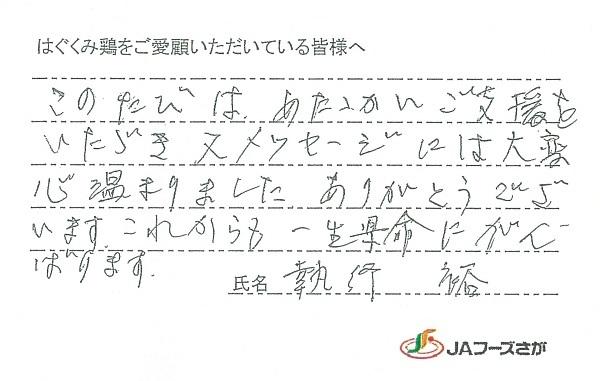 はぐくみ鶏をご愛顧いただいている皆様へ
このたびは、あたたかいご支援を
いただき又メッセージには大変
心温まりました ありがとうござい
います。これからも一生懸命にがん
ばります。
氏名 執行 裕
JAフーズさが